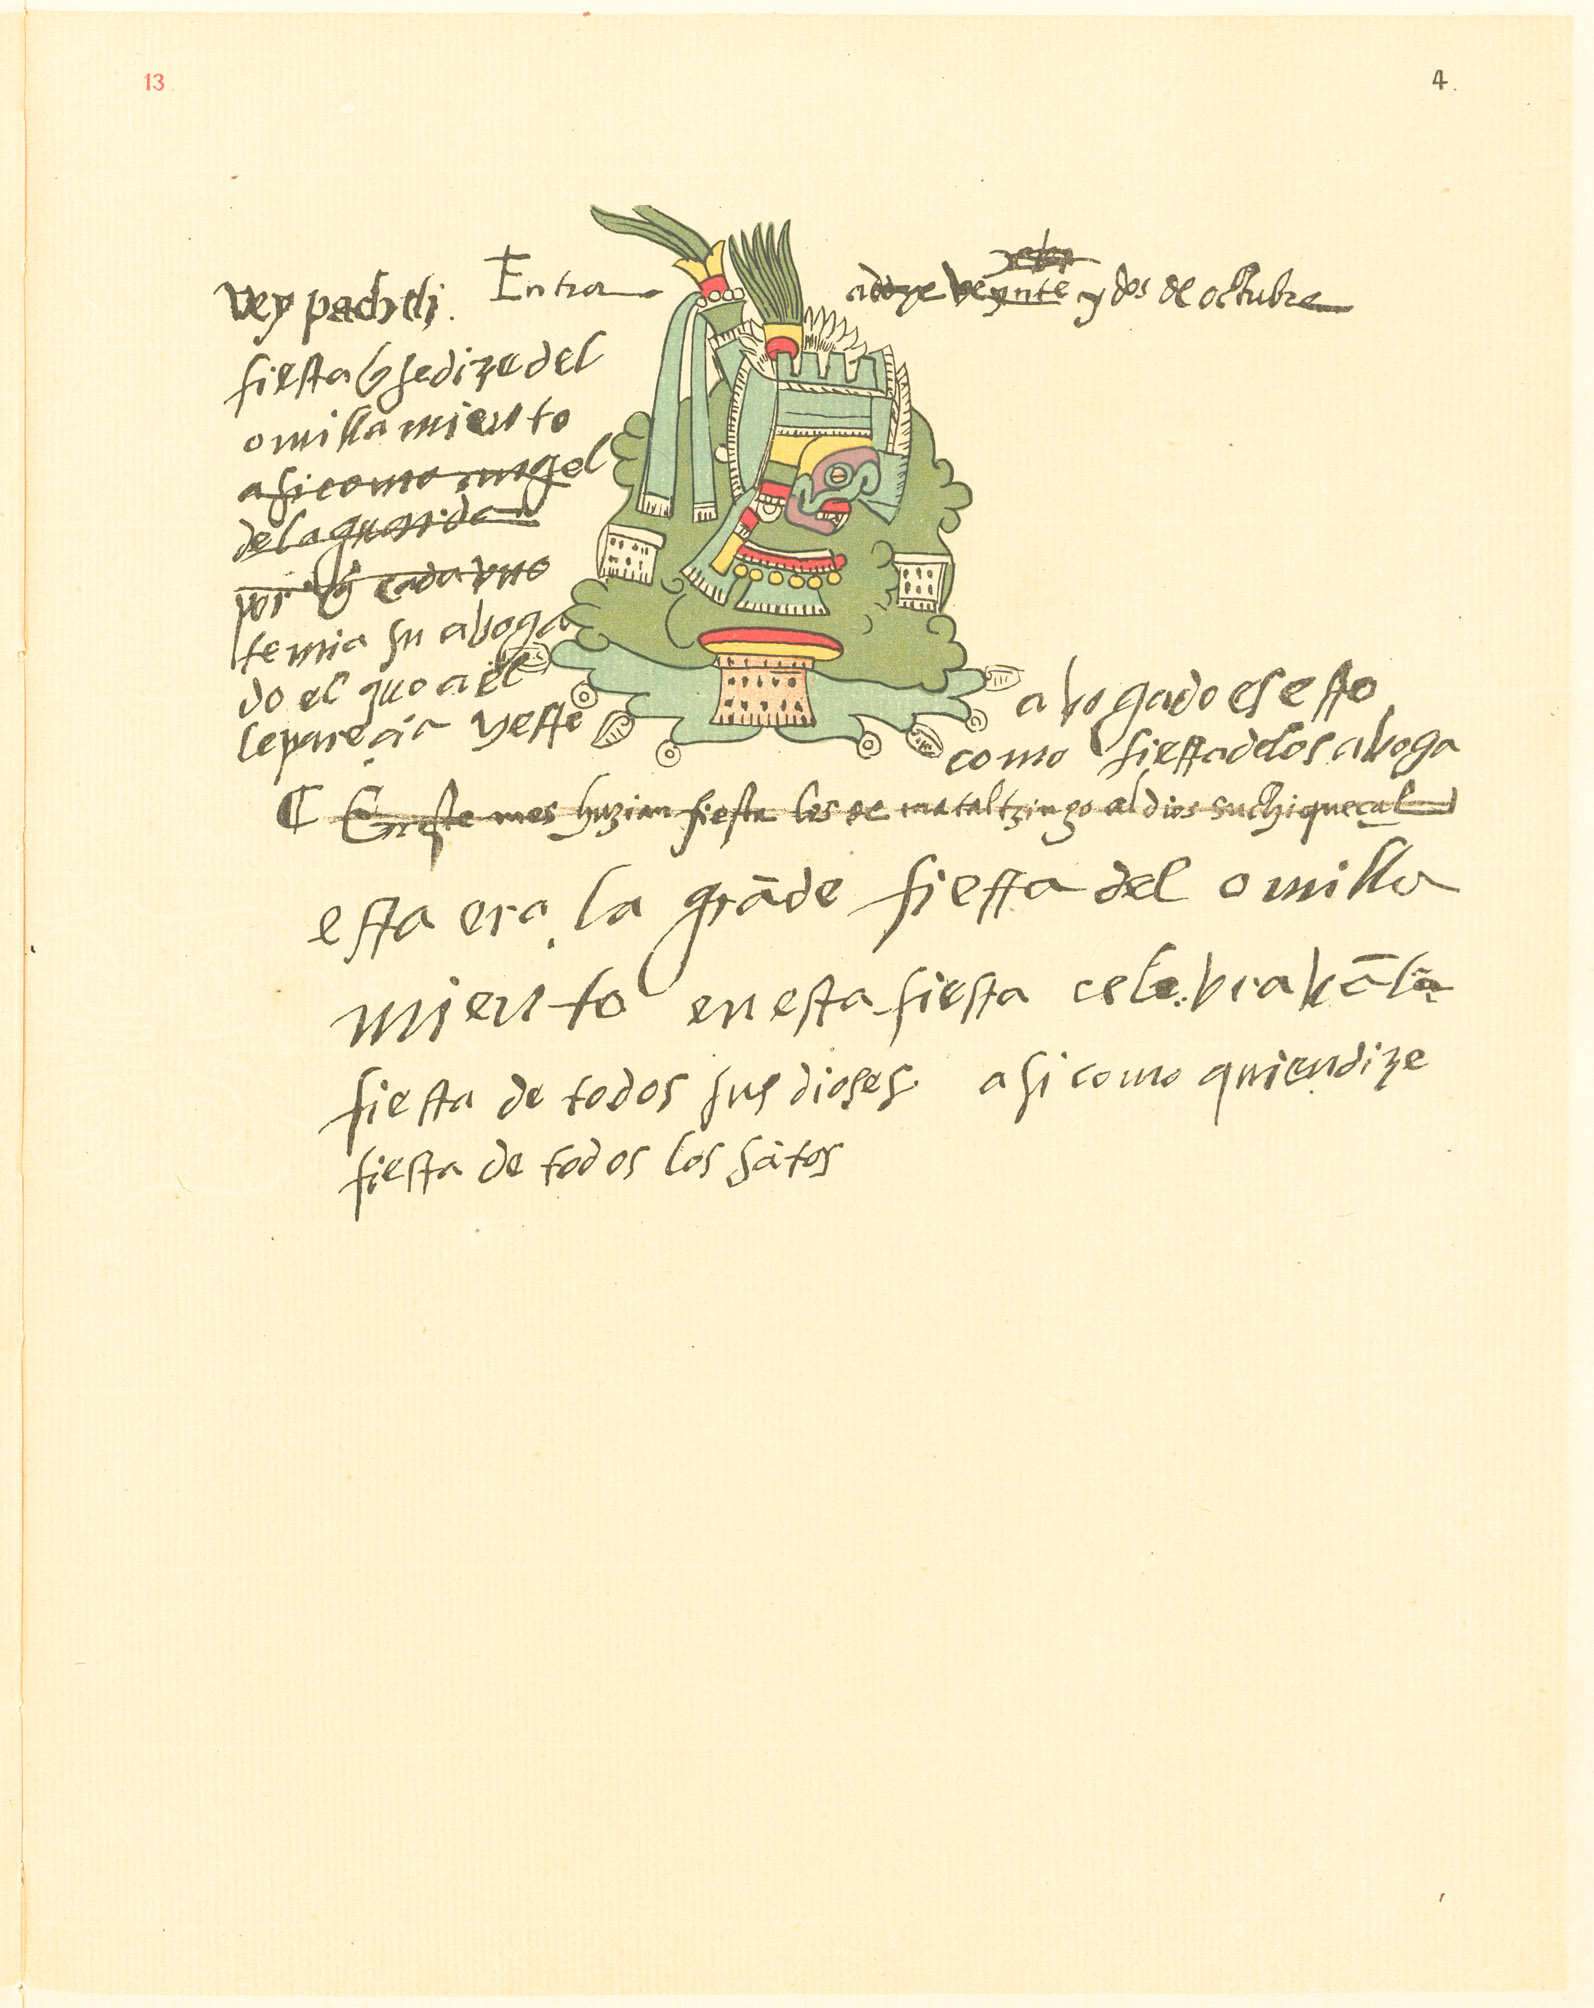 13.
4.
Vey pachtli. Entra a doze veynte y dos de octubre
fiesta q se dize del
omillamiento
asi como angel
de la guarda
por q cada uno
temia su aboga
do el que a el
le pareçia y este abogado es esto
como fiesta de los aboga
¶ En este mes hazian fiesta los de mataltzingo al dios suchiqueçal
esta era la grāde fiesta del omilla
miento en esta fiesta celebrabā la
fiesta de todos sus dioses asi como quien dize
fiesta de todos los sātos